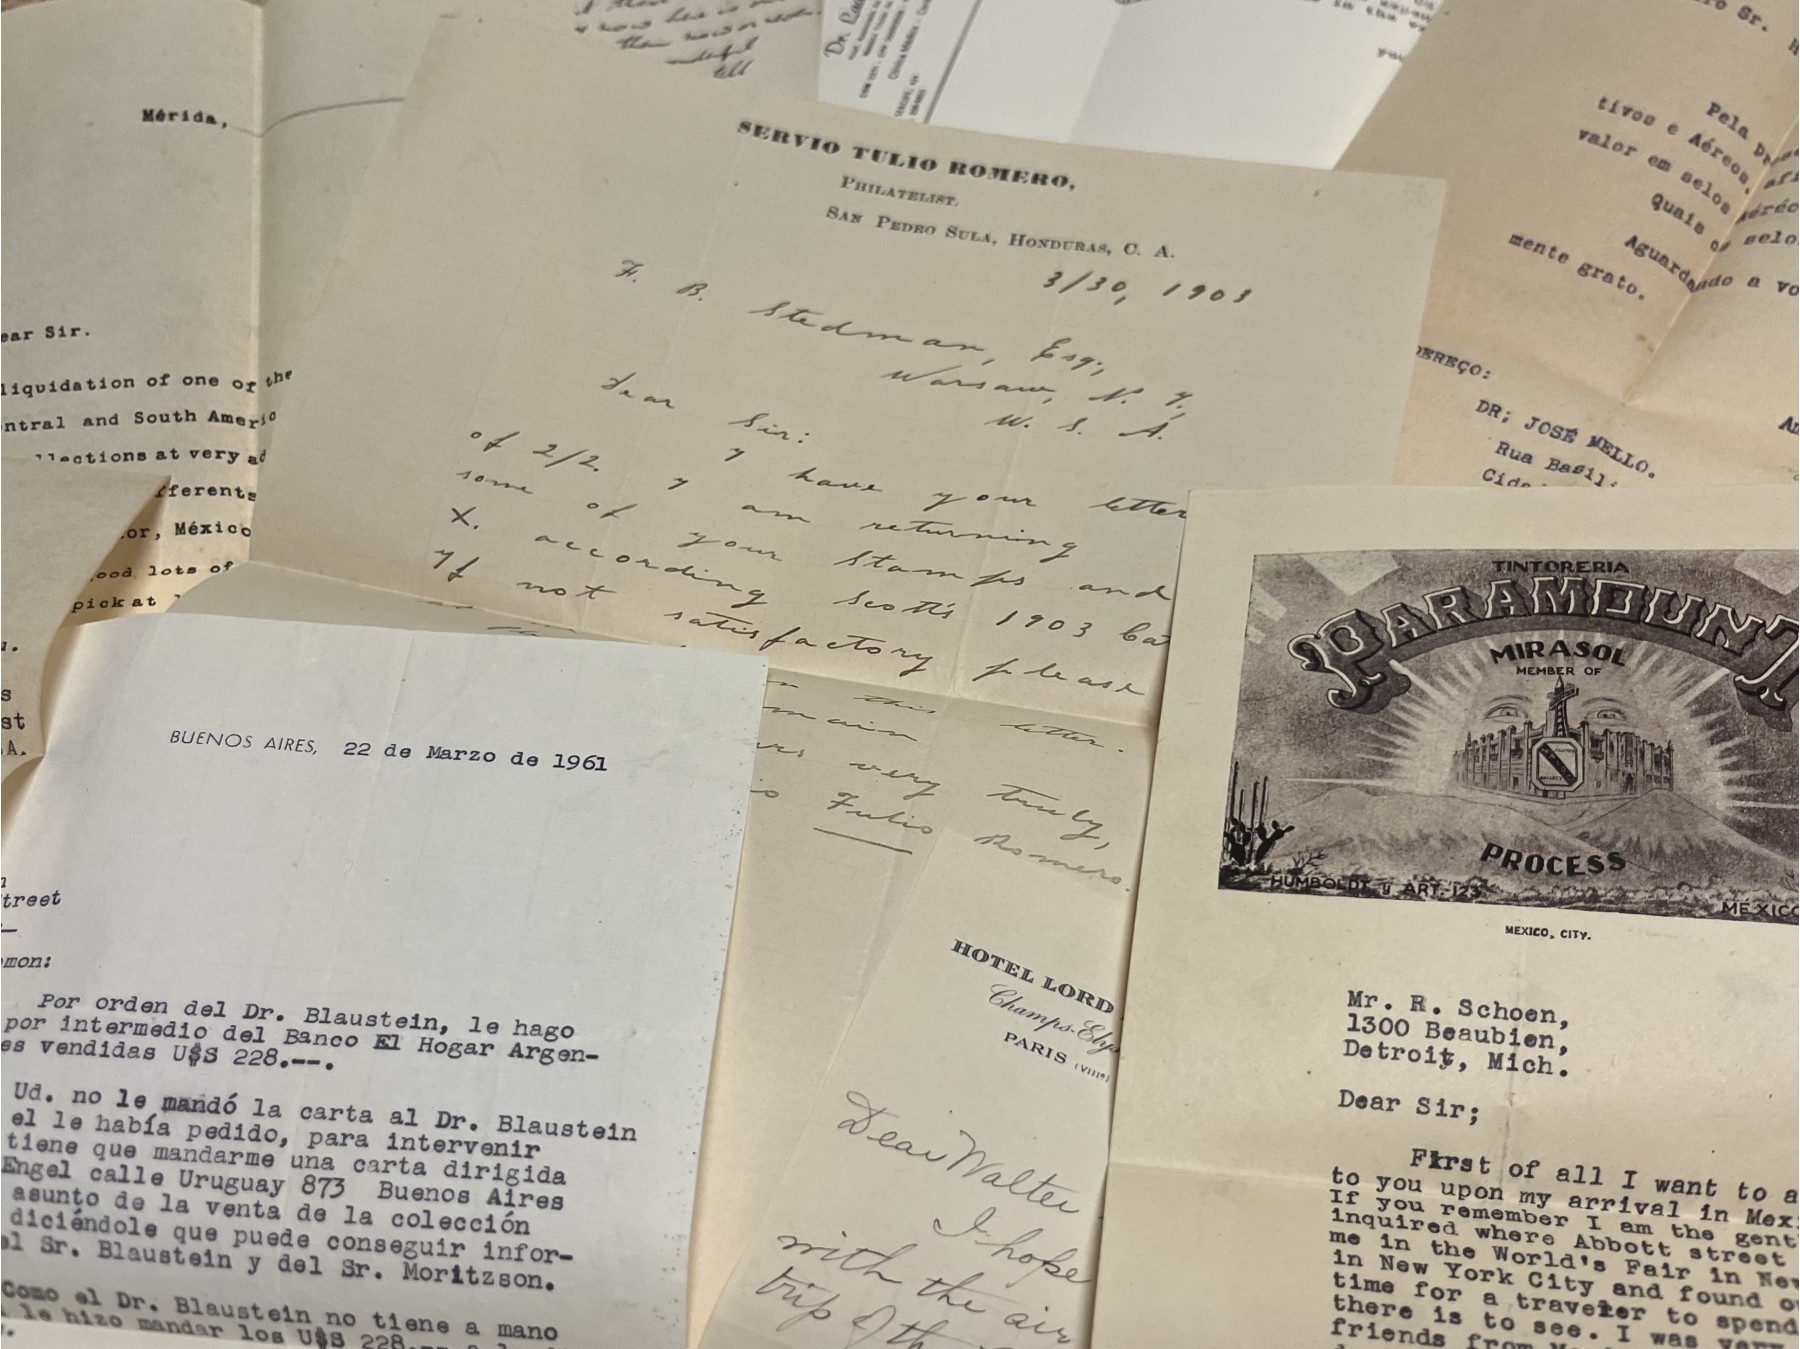 Mérida,
ear Sir.
liquidation of one of the
ntral and South Americ
llections at very ad
fferents
or, México
ood lots of
pick at
st
A.
tell
Dr.
SERVIO TULIO ROMERO,
PHILATELIST.
SAN PEDRO SULA, HONDURAS, C. A.
3/30, 1903
F. B. Stedman, Esq,
Warsaw, N. Y.
U. S. A.
Dear Sir:
I have your letter
of 2/2. I am returning
some of your stamps and
X. according Scott's 1903 Cat
If not satisfactory please
this letter.
main
rs very truly,
o Tulio Romero.
ro Sr.
Pela
tivos e Aéreos, afi
valor em selos aéreo
Quais os selo
Aguardando a vo
mente grato.
DEREÇO:
DR; JOSÉ MELLO.
Rua Basili
Cida
TINTORERIA
PARAMOUNT
MIRASOL
MEMBER OF
PROCESS
HUMBOLDT y ART. 123
MÉXICO
MEXICO, CITY.
Mr. R. Schoen,
1300 Beaubien,
Detroit, Mich.
Dear Sir;
First of all I want to a
to you upon my arrival in Mexi
If you remember I am the gent
inquired where Abbott street
me in the World's Fair in New
in New York City and found o
time for a traveler to spend
there is to see. I was very
friends from
BUENOS AIRES, 22 de Marzo de 1961
treet
mon:
Por orden del Dr. Blaustein, le hago
por intermedio del Banco El Hogar Argen-
es vendidas U$S 228.--.
Ud. no le mandó la carta al Dr. Blaustein
el le había pedido, para intervenir
tiene que mandarme una carta dirigida
Engel calle Uruguay 873 Buenos Aires
asunto de la venta de la colección
diciéndole que puede conseguir infor-
el Sr. Blaustein y del Sr. Moritzson.
Como el Dr. Blaustein no tiene a mano
le hizo mandar los U$S 228.--
HOTEL LORD
Champs-Elys
PARIS (VIIIe)
Dear Walter
I hope
with the air
trip of th